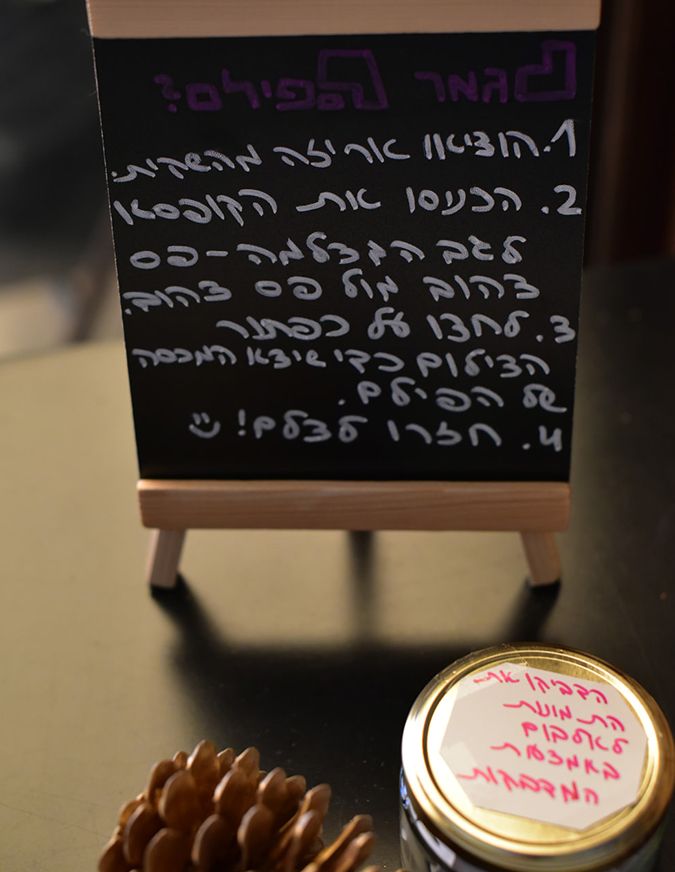 נגמר הפילם?
1. הוציאו אריזה מהשקית.
2. הכניסו את הקופסא
לגב המצלמה - פס
צהוב מול פס צהוב.
3. לחצו על כפתור
הצילום כדי שיצא המכסה
של הפילם.
4. חזרו לצלם! :)
הדביקו את
התמונות
לאלבום
באמצעות
המדבקות